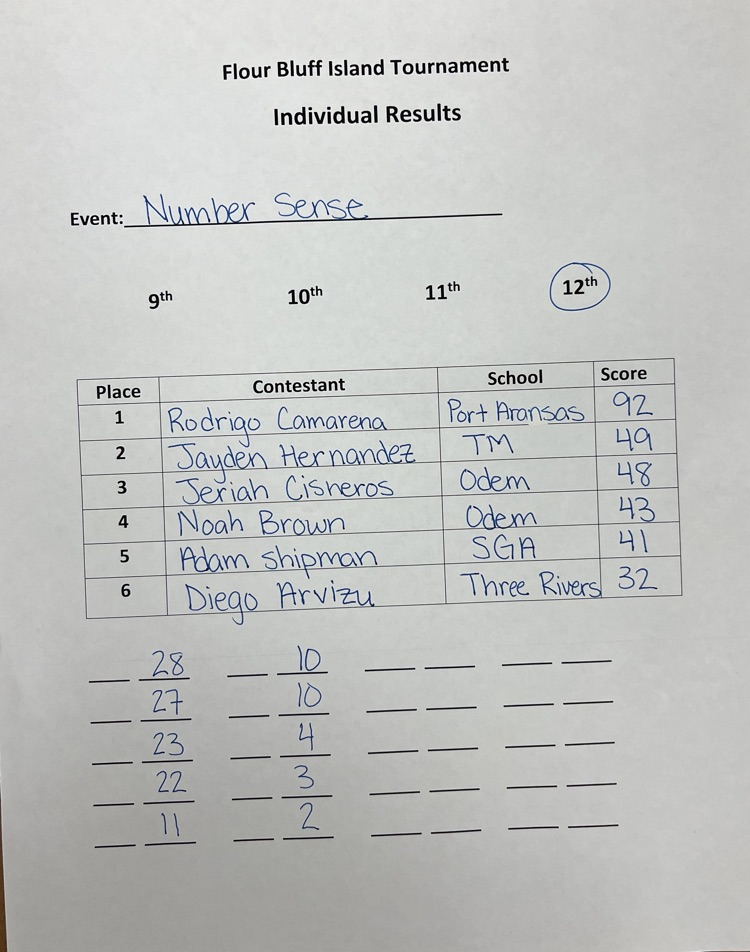 Flour Bluff Island Tournament
Individual Results
Event: Number Sense
9th 10th 11th 12th
Place Contestant School Score
1 Rodrigo Camarena Port Aransas 92
2 Jayden Hernandez TM 49
3 Jeriah Cisneros Odem 48
4 Noah Brown Odem 43
5 Adam Shipman SGA 41
6 Diego Arvizu Three Rivers 32
28 10
27 10
23 4
22 3
11 2